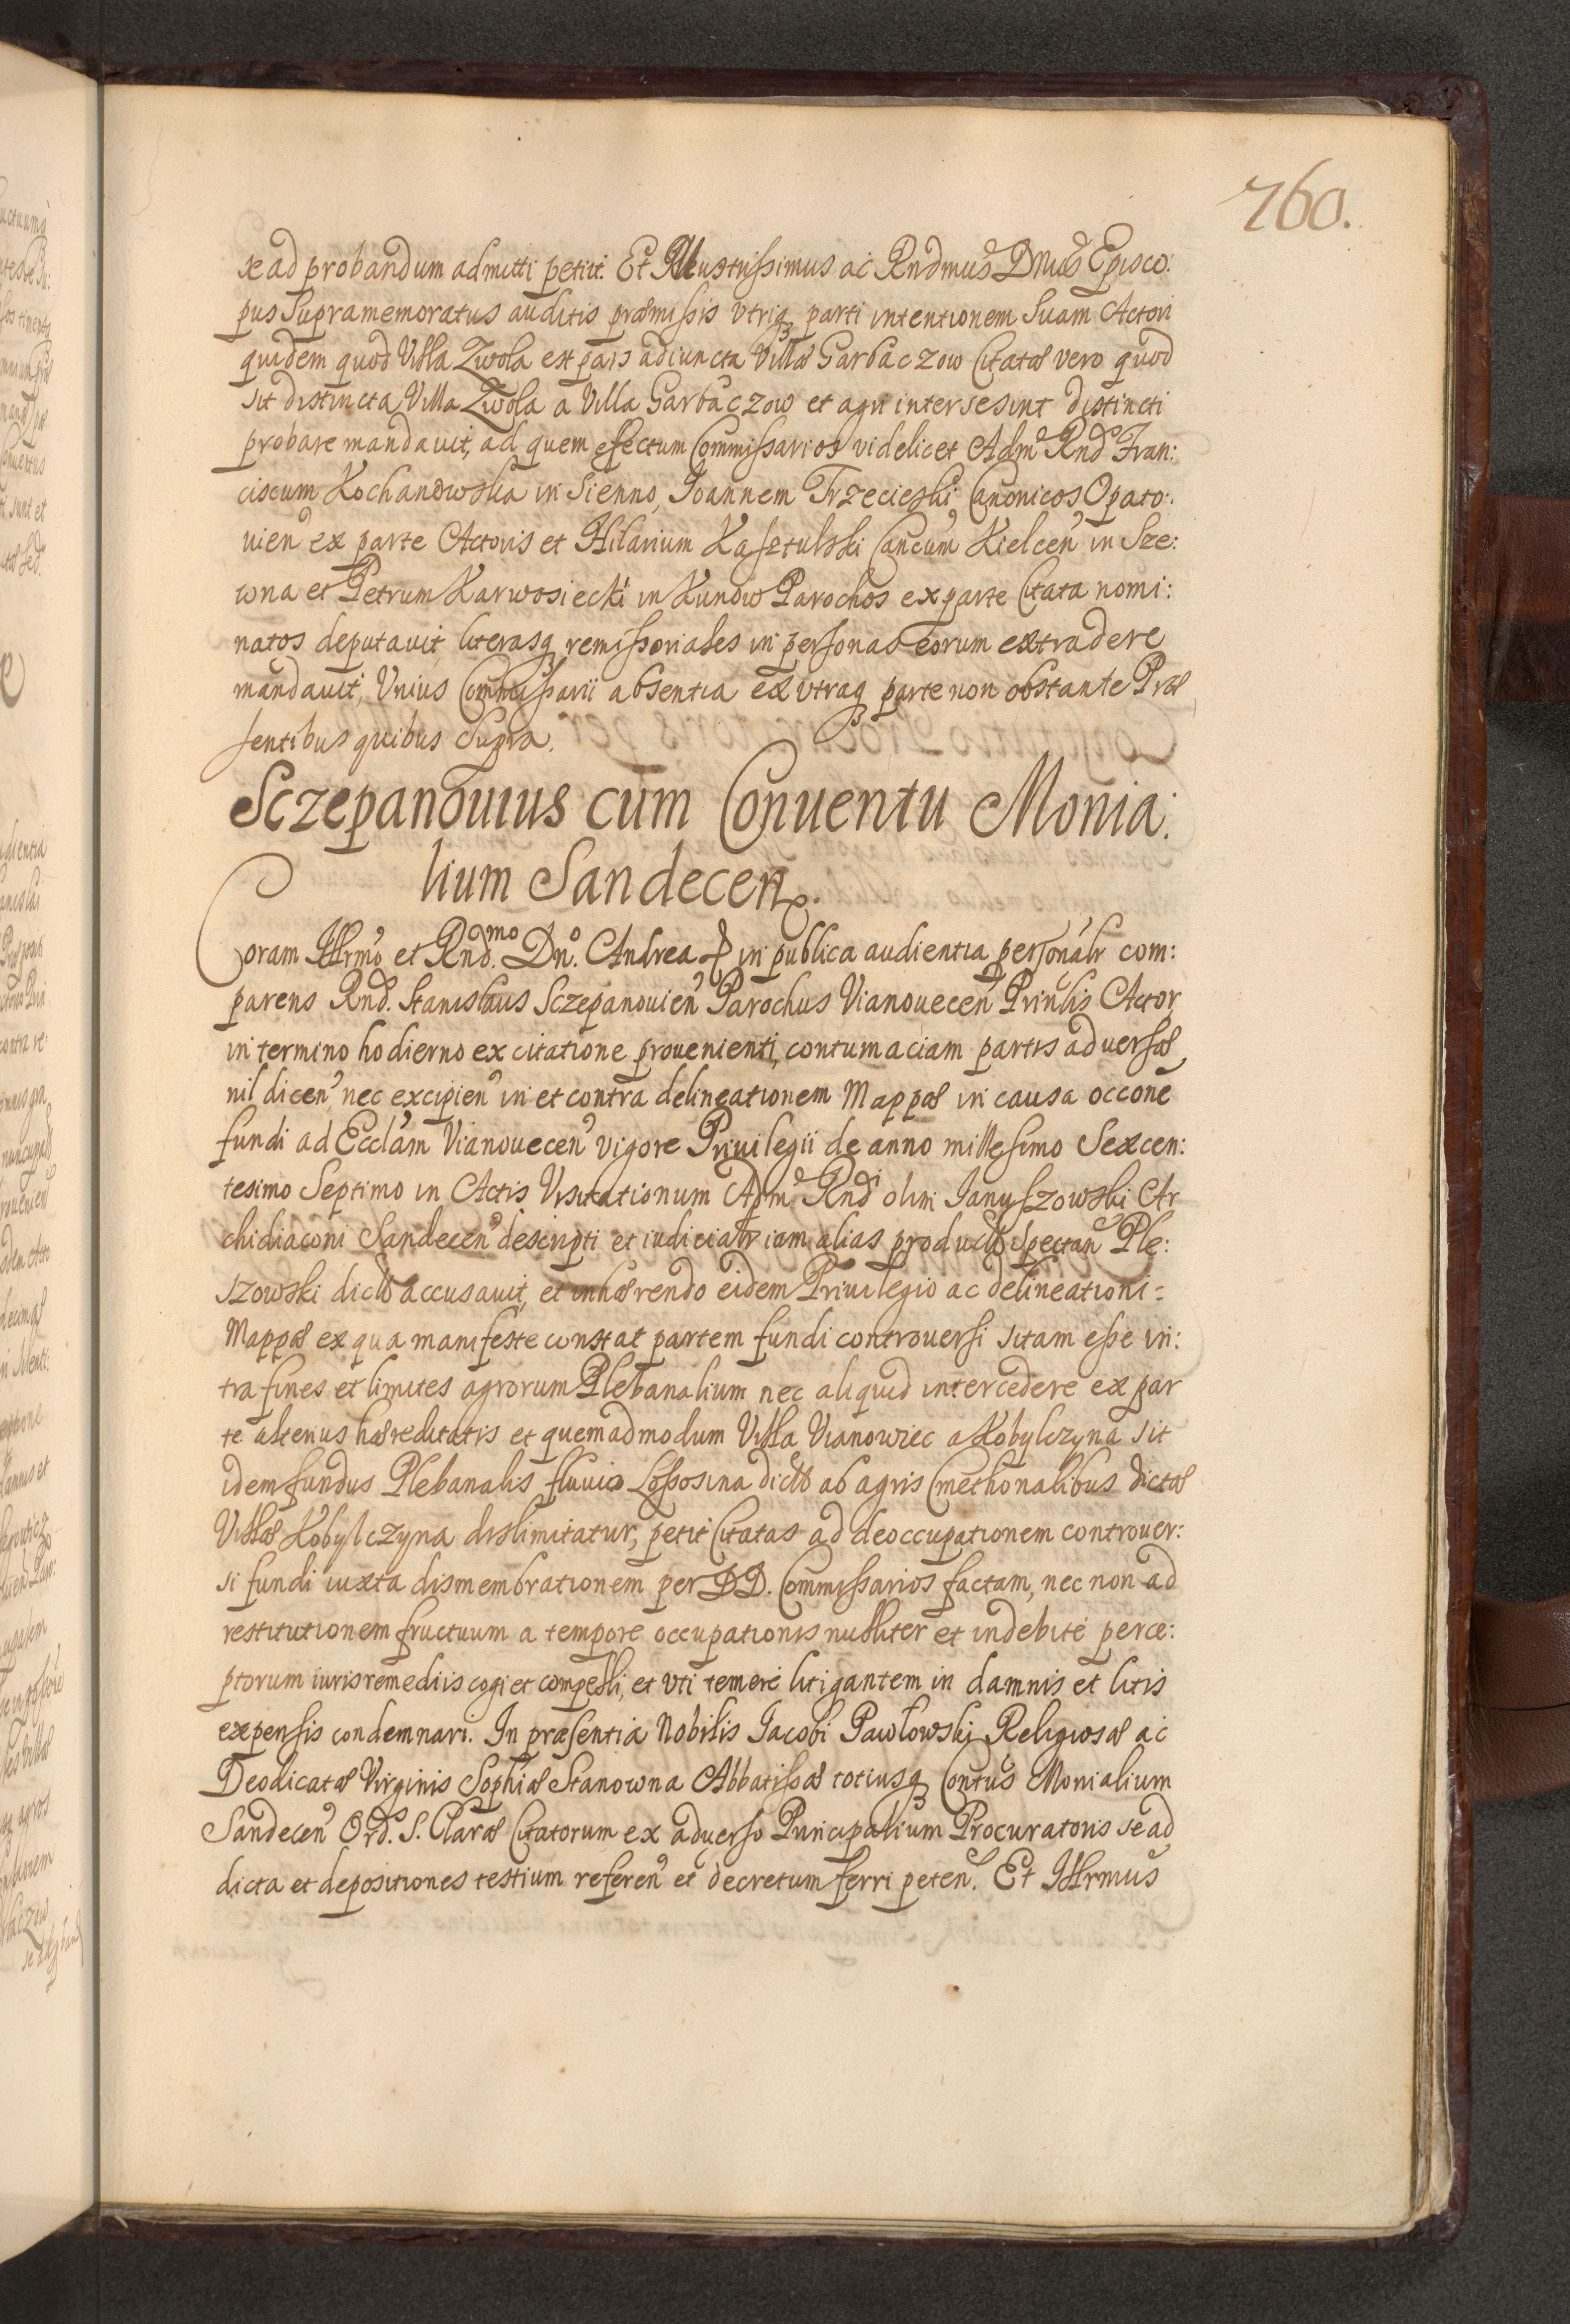 760.
se ad probandum admitti petiit. Et Illustrissimus ac Rndmus Dnus Episco:
pus Supramemoratus auditis præmissis vtriq parti intentionem Suam Actori
quidem quod Villa Zwola est pars adiuncta Villæ Garbaczow Citatæ vero quod
sit distincta Villa Zwola a Villa Garbaczow et agri inter se sint distincti
probare mandauit, ad quem effectum Commissarios videlicet Adm Rnd Fran:
ciscum Kochanowski in Sienno, Ioannem Trzecieski Canonicos Opato:
uien ex parte Actoris et Hilarium Kasztulski Cancum Kielcen in Sze:
wna et Petrum Karwosiecki in Kunow Parochos ex parte Citata nomi:
natos deputauit, literasq remissoriales in personas eorum extradere
mandauit, Vnius Commissarii absentia ex vtraq parte non obstante Præ
sentibus quibus Supra.
Sczepanouius cum Conuentu Monia:
lium Sandecen.
Coram Illrmo et Rnd.mo Dno. Andrea in publica audientia personalr com:
parens Rnd. Stanislaus Sczepanouien Parochus Vianouecen Prinlis Actor
in termino hodierno ex citatione prouenienti, contumaciam partis aduersæ
nil dicen nec excipien in et contra delineationem Mappæ in causa occone
fundi ad Ecclam Vianouecen vigore Priuilegii de anno millesimo Sexcen:
tesimo Septimo in Actis Visitationum Adm Rndi olim Ianuszowski Ar
chidiaconi Sandecen descripti et iudicialr iam alias producti Spectan Ple:
szowski dicti accusauit, et inhærendo eidem Priuilegio ac delineationi
Mappæ ex qua manifeste constat partem fundi controuersi sitam esse in:
tra fines et limites agrorum Plebanalium nec aliquid intercedere ex par
te alterius hæreditatis et quemadmodum Villa Vianowiec a Kobylczyna sit
idem fundus Plebanalis fluuio Lossosina dicto ab agris Cmethonalibus dictæ
Villæ Kobylczyna dislimitatur, petit Citatas ad deoccupationem controuer:
si fundi iuxta dismembrationem per DD. Commissarios factam, nec non ad
restitutionem fructuum a tempore occupationis nulliter et indebite perce:
ptorum iuris remediis cogi et compelli, et vti temere litigantem in damnis et litis
expensis condemnari. In præsentia Nobilis Iacobi Pawłowski Religiosæ ac
Deodicatæ Virginis Sophiæ Stanowna Abbatissæ totiusq Contus Monialium
Sandecen Ord. S. Claræ Citatorum ex aduerso Principalium Procuratoris se ad
dicta et depositiones testium referen et decretum ferri peten. Et Illrmus